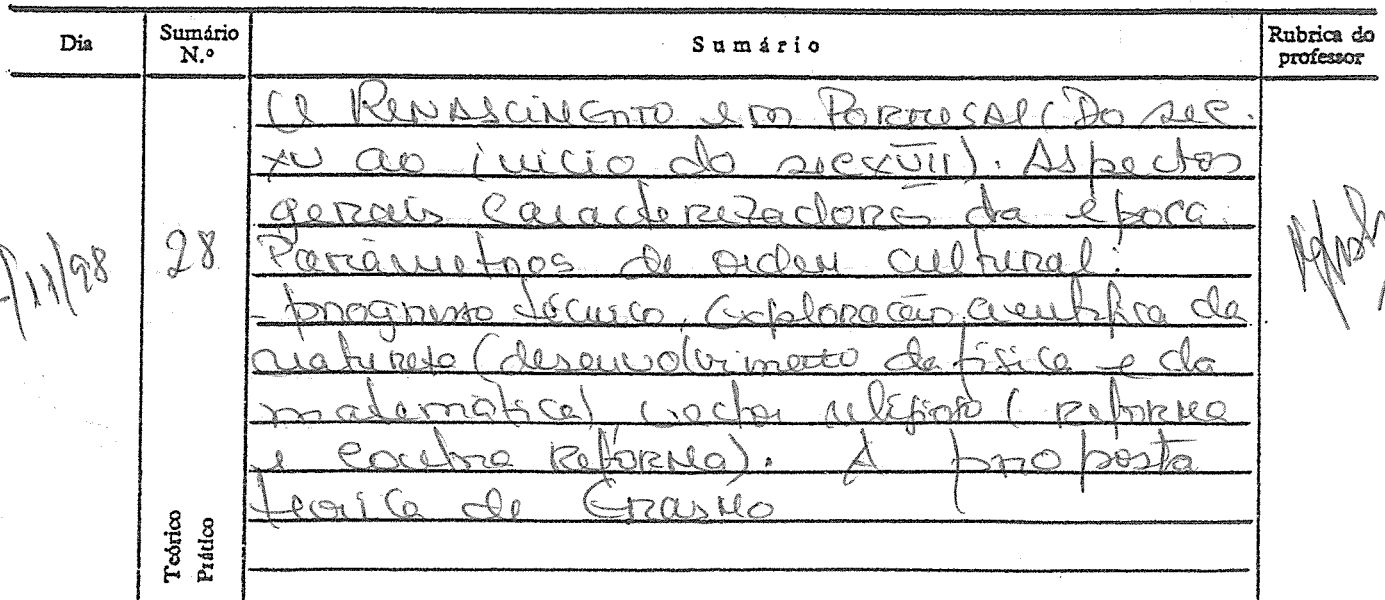 Dia Sumário N.º Sumário Rubrica do professor
O Renascimento em Portugal (Do sec.
XV ao inicio do sec XVII). Aspectos
gerais caracterizadores da época.
/11/98 28 Parâmetros de ordem cultural:
- progresso técnico, exploração cientifica da
natureza (desenvolvimento da fisica e da
matemática) vector religioso ( reforma
e contra Reforma). A proposta
teorica de Erasmo
Teórico
Prático